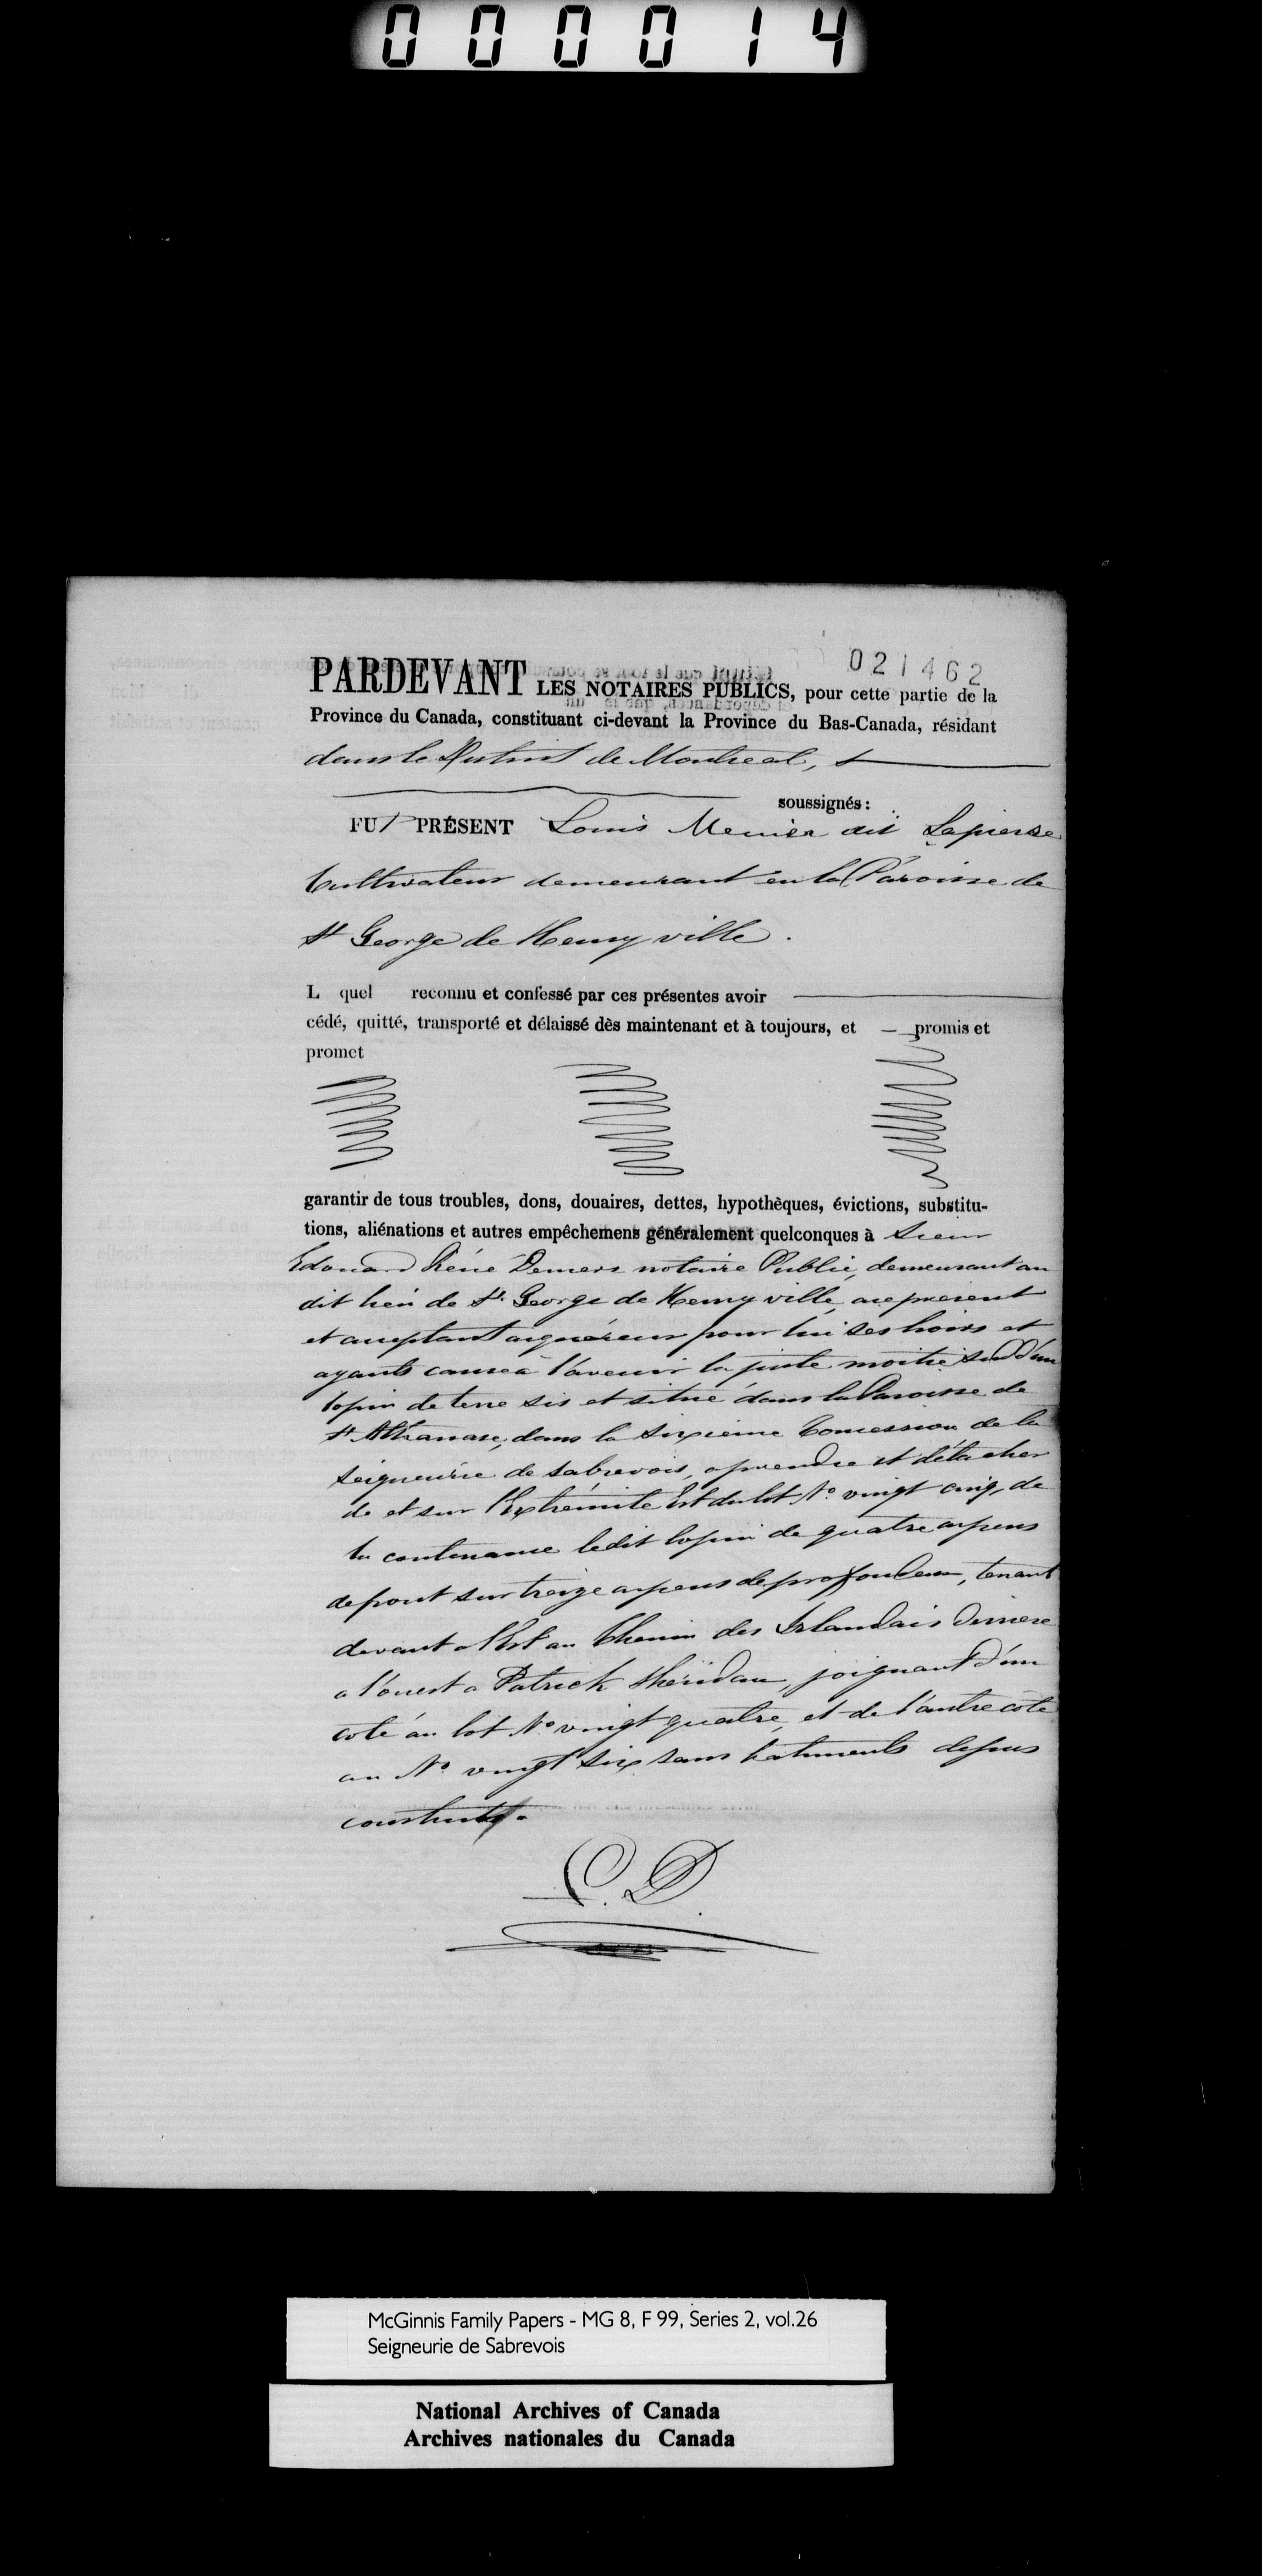 000014
021462
PARDEVANT LES NOTAIRES PUBLICS, pour cette partie de la
Province du Canada, constituant ci-devant la Province du Bas-Canada, résidant
dans le District de Montreal,
soussignés:
FUT PRÉSENT Louis Menier dit Lapierre
Cultivateur demeurant en la Paroisse de
St George de Henryville.
L quel reconnu et confessé par ces présentes avoir
cédé, quitté, transporté et délaissé dès maintenant et à toujours, et promis et
promet
garantir de tous troubles, dons, douaires, dettes, hypothèques, évictions, substitu-
tions, aliénations et autres empêchemens généralement quelconques à Sieur
Edouard Réné Demers notaire Public, demeurant au
dit lieu de St. George de Henryville, a ce present
et acceptant acquéreur pour lui ses hoirs et
ayants cause à l'avenir la juste moitié sud d'un
lopin de terre sis et situé dans la Paroisse de
St Athanase, dans la sixieme Concession de la
Seigneurie de Sabrevois, a prendre et détacher
de et sur l'Extrémité Est du lot No. vingt cinq, de
la contenance ledit lopin de quatre arpens
de front sur treize arpens de profondeur, tenant
devant a l'Est au Chemin des Irlandais Derriere
a l'ouest a Patrick Sheridan, joignant d'un
coté au lot No vingt quatre, et de l'autre coté
au No vingt six sans batiments dessus
construits.
McGinnis Family Papers - MG 8, F 99, Series 2, vol.26
Seigneurie de Sabrevois
National Archives of Canada
Archives nationales du Canada